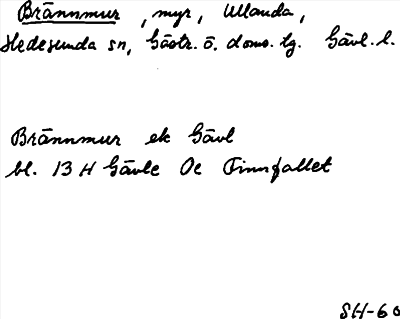 Brännmur, myr, Ullanda,
Hedesunda sn, Gästr. ö. doms. lg. Gävl. l.
Brännmur ek Gävl
bl. 13 H Gävle Oc Finnfallet
SH-60